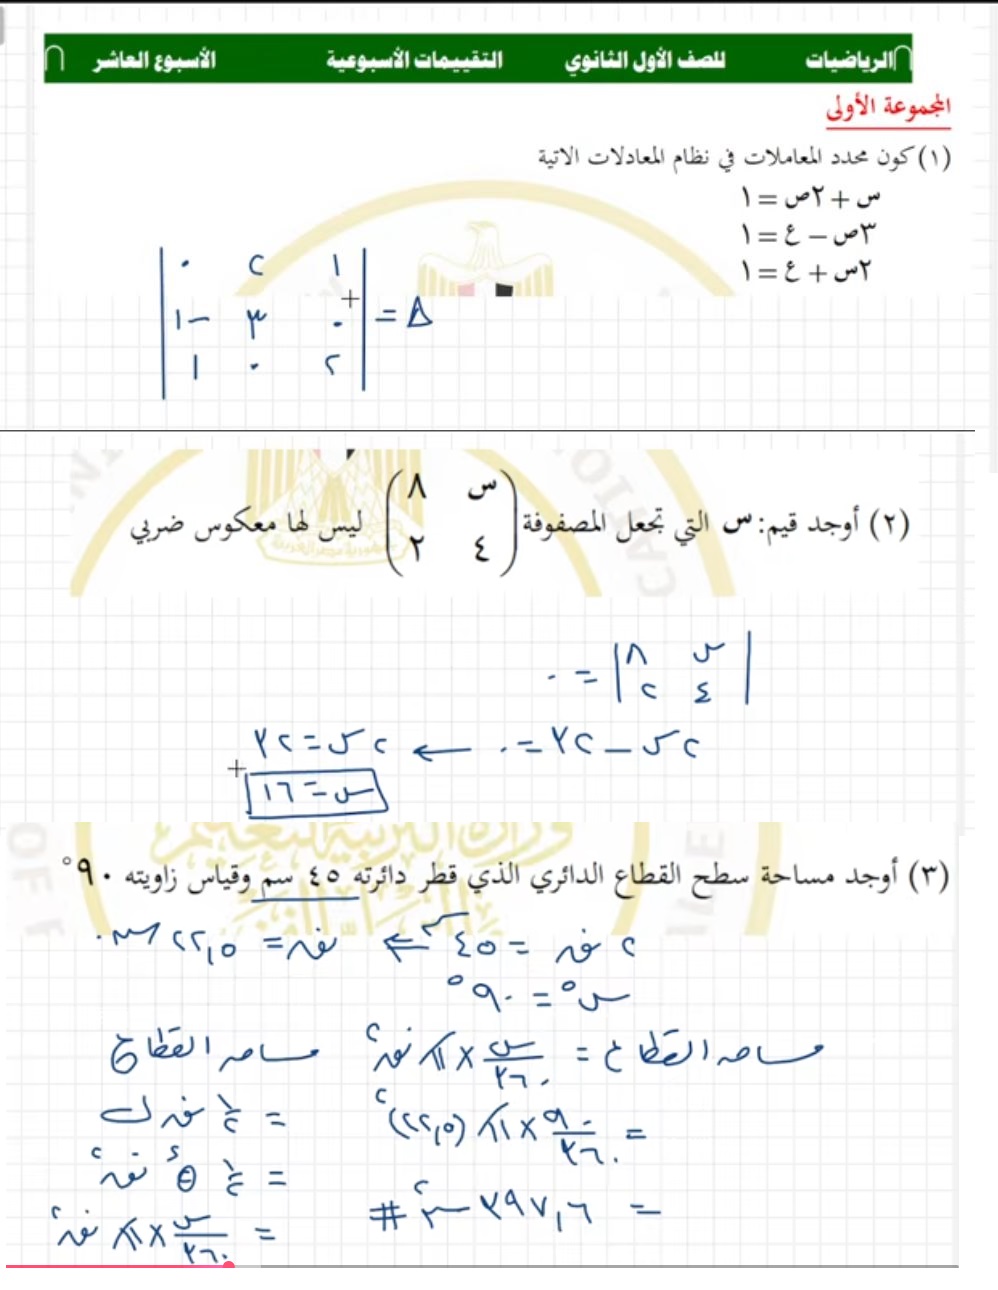 الرياضيات للصف الأول الثانوي التقييمات الأسبوعية الأسبوع العاشر
المجموعة الأولى
(١) كون محدد المعاملات في نظام المعادلات الاتية
س + ٢ص = ١
٣ص – ع = ١
٢س + ع = ١
١ ٢ ٠
Δ = ٠ ٣ -١
٢ ٠ ١
(٢) أوجد قيم: س التي تجعل المصفوفة (س ٨ ٤ ٢) ليس لها معكوس ضربي
|س ٨
٤ ٢| = ٠
٢س – ٣٢ = ٠ ← ٢س = ٣٢
س = ١٦
(٣) أوجد مساحة سطح القطاع الدائري الذي قطر دائرته ٤٥ سم وقياس زاويته ٩٠°
٢ نق = ٤٥ ← نق = ٢٢,٥ سم
س° = ٩٠°
مساحة القطاع = س/٣٦٠ × π نق٢ مساحة القطاع
= ٩٠/٣٦٠ × π (٢٢,٥)٢ = ١/٢ نق ل
= ١/٢ θء نق٢
= ٣٩٧,٦ سم٢ #
= س/٣٦٠ × π نق٢